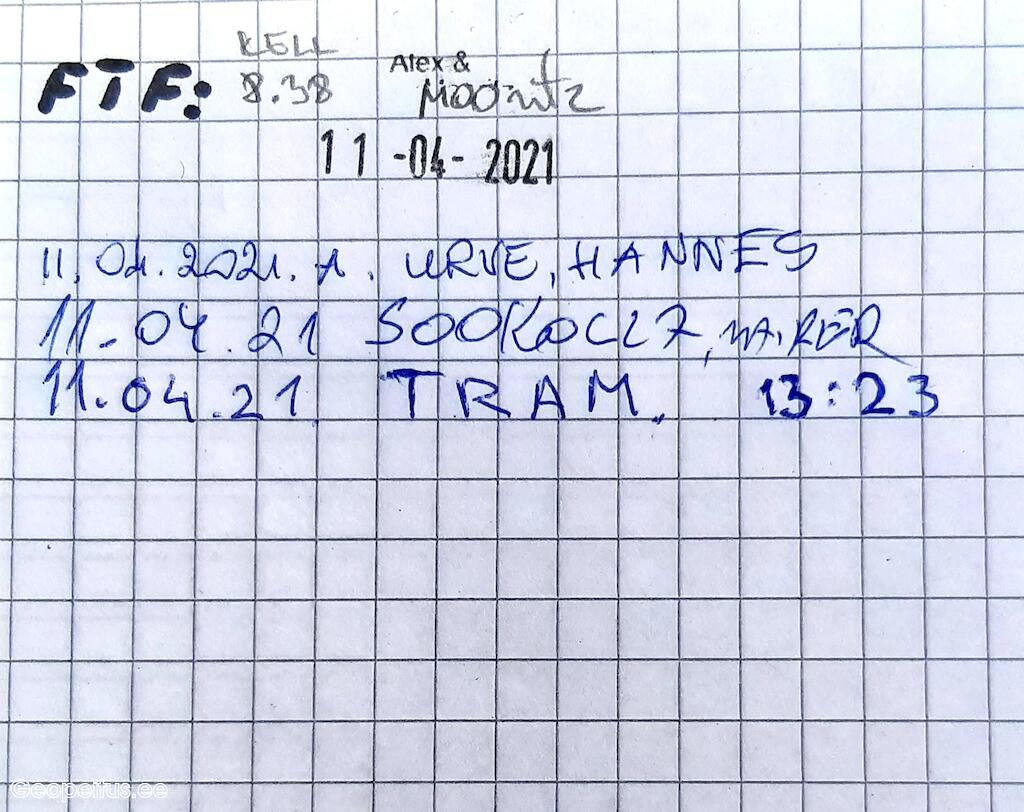 KELL
FTF: 8.38 Alex &
Mooritz
11 -04- 2021
11.04.2021. A. URVE, HANNES
11.04.21
11.04.21. TRAM. 13:23
Geopeitus.ee